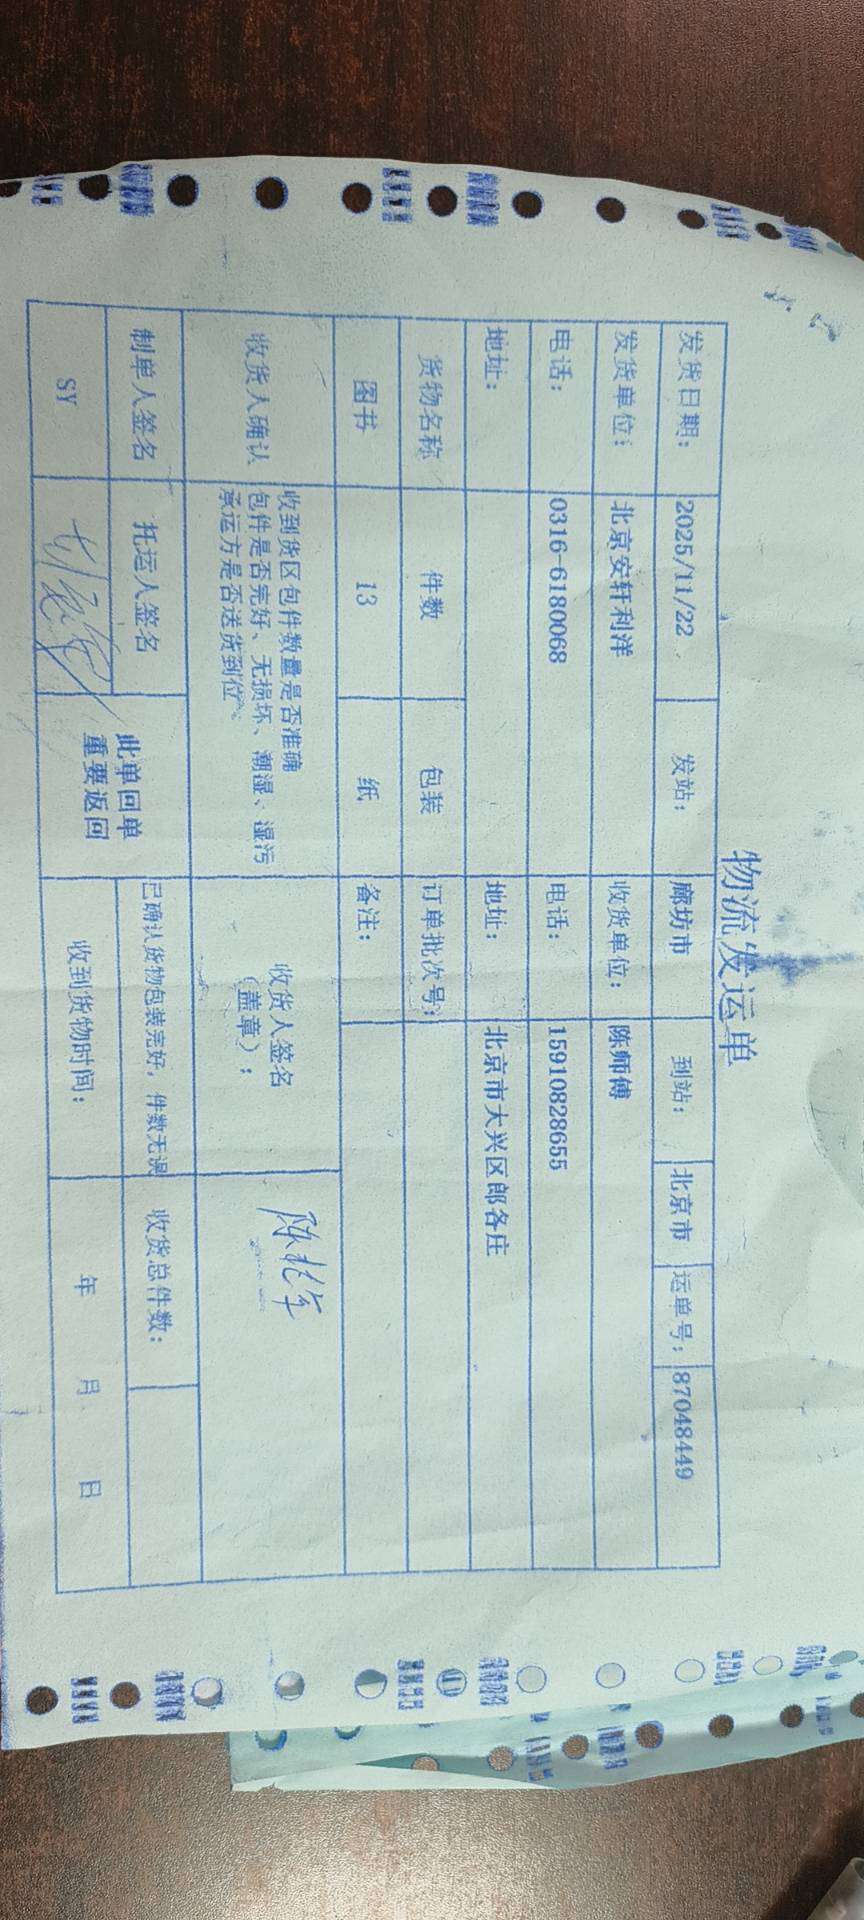 物流发运单
发货日期: 2025/11/22 发站: 廊坊市 到站: 北京市 运单号: 87048449
发货单位: 北京安轩利洋 收货单位: 陈师傅
电话: 0316-6180068 电话: 15910828655
地址: 地址: 北京市大兴区郎各庄
货物名称 件数 包装 订单批次号:
图书 13 纸 备注:
收货人确认
收到货区包件数量是否准确
包件是否完好、无损坏、潮湿、湿污
承运方是否送货到位、
收货人签名
(盖章):
制单人签名 托运人签名 此单回单
重要返回
已确认货物包装完好,件数无误 收货总件数:
SY 收到货物时间: 年 月 日